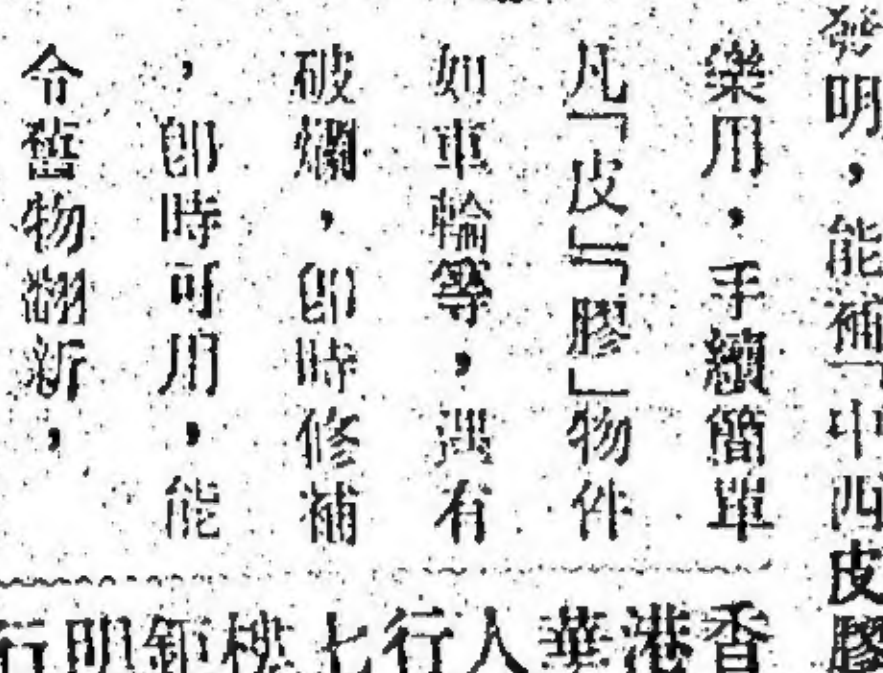 發明，能補「中西皮膠
樂用，手續簡單
凡「皮」「膠」物件
如車輪等，遇有
破爛，即時修補
，即時可用，能
令舊物翻新，
香港華人行七樓鉅明行